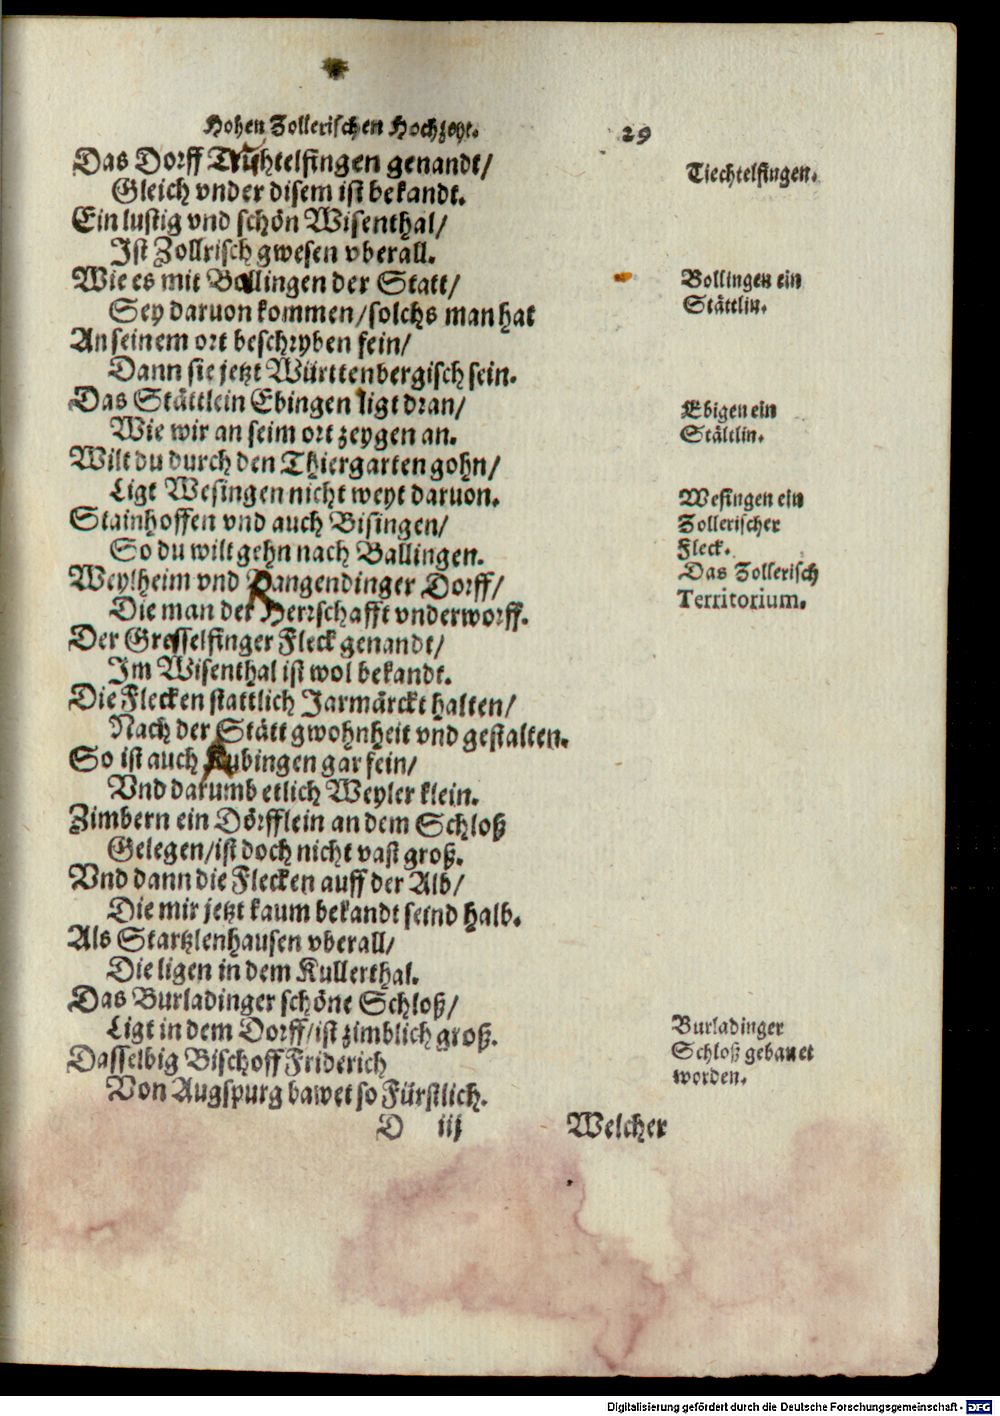 Hohen Zollerischen Hochzeyt. 29
Das Dorff Truchtelfingen genandt/
Tiechtelfingen.
Gleich vnder disem ist bekandt.
Ein lustig vnd schön Wisenthal/
Ist Zollrisch gwesen vberall.
Wie es mit Ballingen der Statt/
Bollingen ein
Stättlin.
Sey daruon kommen/solchs man hat
An seinem ort beschryben fein/
Dann sie jetzt Württenbergisch sein.
Das Stättlein Ebingen ligt dran/
Ebigen ein
Stätlin.
Wie wir an seim ort zeygen an.
Wilt du durch den Thiergarten gohn/
Ligt Wesingen nicht weyt daruon.
Wesingen ein
Zollerischer
Fleck.
Stainhoffen vnd auch Bisingen/
So du wilt gehn nach Ballingen.
Das Zollerisch
Territorium.
Weylheim vnd Rangendinger Dorff/
Die man der Herrschafft vnderworff.
Der Gresselfinger Fleck genandt/
Im Wisenthal ist wol bekandt.
Die Flecken stattlich Jarmärckt halten/
Nach der Stätt gwohnheit vnd gestalten.
So ist auch Aubingen gar fein/
Vnd darumb etlich Weyler klein.
Zimbern ein Dörfflein an dem Schloß
Gelegen/ist doch nicht vast groß.
Vnd dann die Flecken auff der Alb/
Die mir jetzt kaum bekandt seind halb.
Als Startzlenhausen vberall/
Die ligen in dem Kullerthal.
Das Burladinger schöne Schloß/
Ligt in dem Dorff/ist zimblich groß.
Burladinger
Schloß gebauet
worden.
Dasselbig Bischoff Friderich
Von Augspurg bawet so Fürstlich.
D iij Welcher
Digitalisierung gefördert durch die Deutsche Forschungsgemeinschaft - DFG